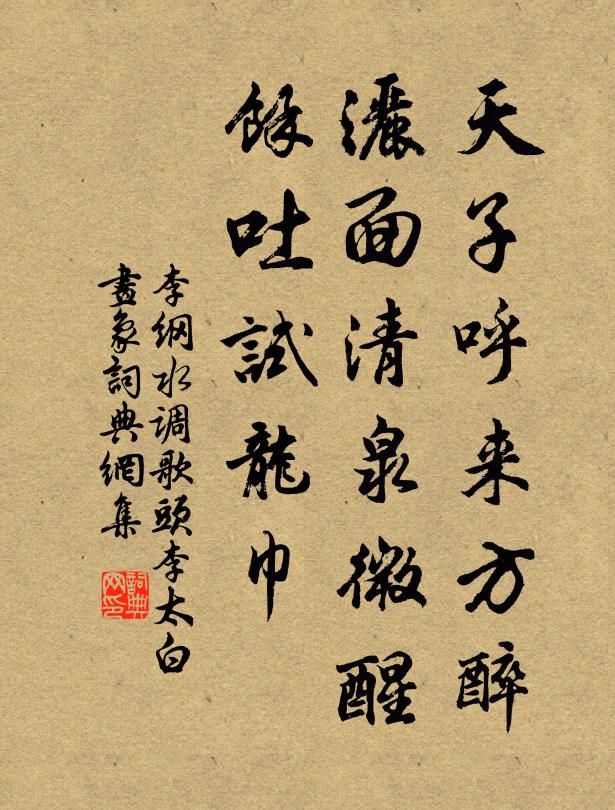 天子呼来方醉
灑面清泉微醒
餘吐試龍巾
李綱水调歌頭李太白
畫象詞典網集
詞典网印